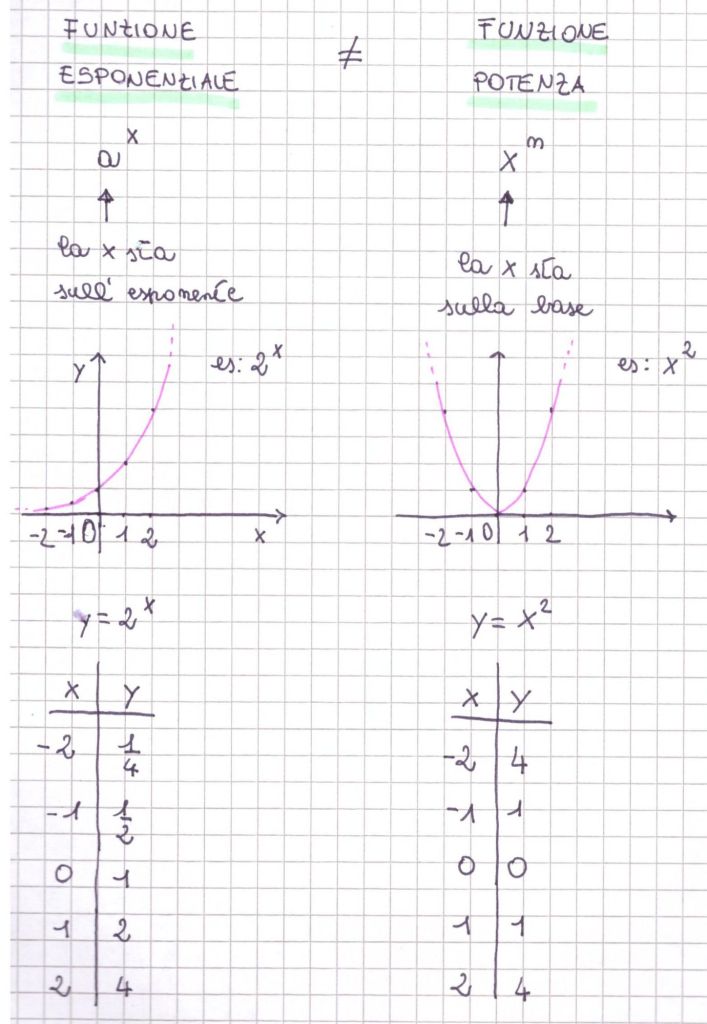 FUNZIONE
ESPONENZIALE
≠
FUNZIONE
POTENZA
a^x
la x sta
sull' esponente
x^n
la x sta
sulla base
es: 2^x
y
-2 -1 0 1 2 x
es: x^2
-2 -1 0 1 2
y = 2^x
x y
-2 1/4
-1 1/2
0 1
1 2
2 4
y = x^2
x y
-2 4
-1 1
0 0
1 1
2 4